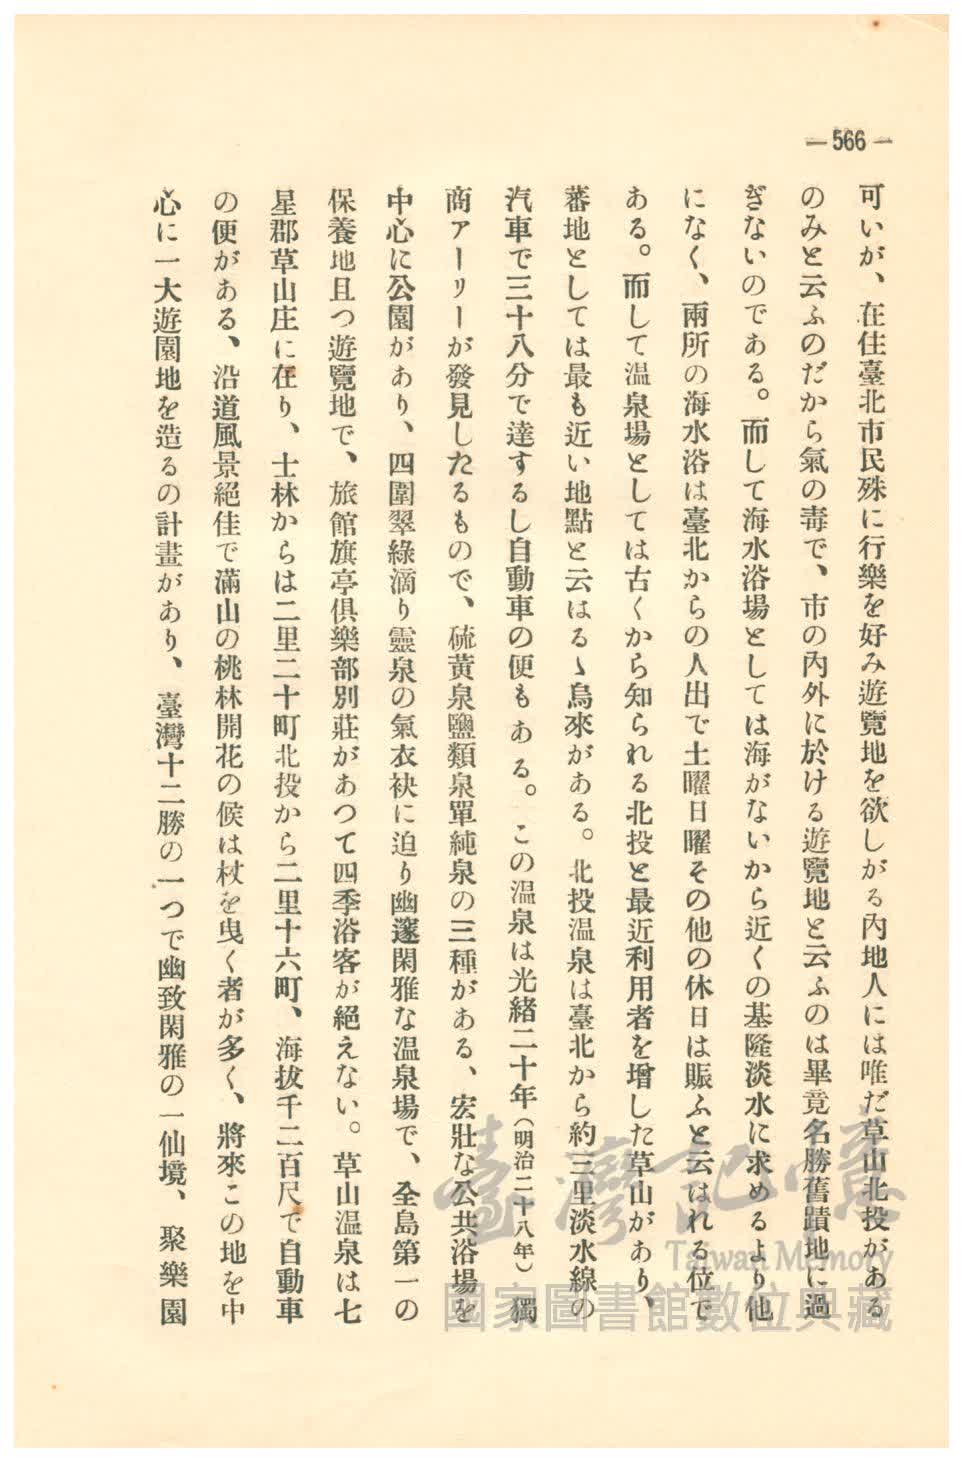 — 566 —
可いが、在住臺北市民殊に行樂を好み遊覽地を欲しがる內地人には唯だ草山北投がある
のみと云ふのだから氣の毒で、市の內外に於ける遊覽地と云ふのは畢竟名勝舊蹟地に過
ぎないのである。而して海水浴場としては海がないから近くの基隆淡水に求めるより他
になく、兩所の海水浴は臺北からの人出で土曜日曜その他の休日は賑ふと云はれる位で
ある。而して温泉場としては古くから知られる北投と最近利用者を增した草山があり、
蕃地としては最も近い地點と云はるゝ烏來がある。北投温泉は臺北から約三里淡水線の
汽車で三十八分で達するし自動車の便もある。この温泉は光緖二十年(明治二十八年)獨
商アーリーが發見したるもので、硫黄泉鹽類泉單純泉の三種がある、宏壯な公共浴場を
中心に公園があり、四圍翠綠滴り靈泉の氣衣袂に迫り幽邃閑雅な温泉場で、全島第一の
保養地且つ遊覽地で、旅館旗亭俱樂部別莊があつて四季浴客が絕えない。草山温泉は七
星郡草山庄に在り、士林からは二里二十町北投から二里十六町、海拔千二百尺で自動車
の便がある、沿道風景絕佳で滿山の桃林開花の候は杖を曳く者が多く、將來この地を中
心に一大遊園地を造るの計畫があり、臺灣十二勝の一つで幽致閑雅の一仙境、聚樂園
臺灣記憶
Taiwan Memory
國家圖書館數位典藏